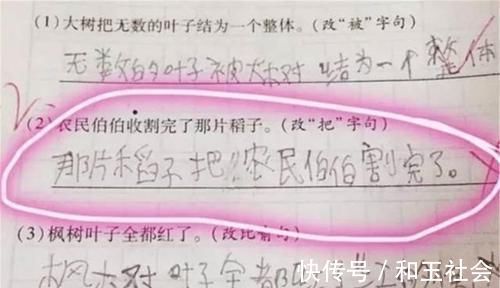 (1)大树把无数的叶子结为一个整体。(改“被”字句)
无数的叶子被大树结为一个整体
(2)农民伯伯收割完了那片稻子。(改“把”字句)
那片稻子把农民伯伯割完了。
(3)枫树叶子全都红了。(改比喻句)
枫树叶子全都
快传号/和玉社会